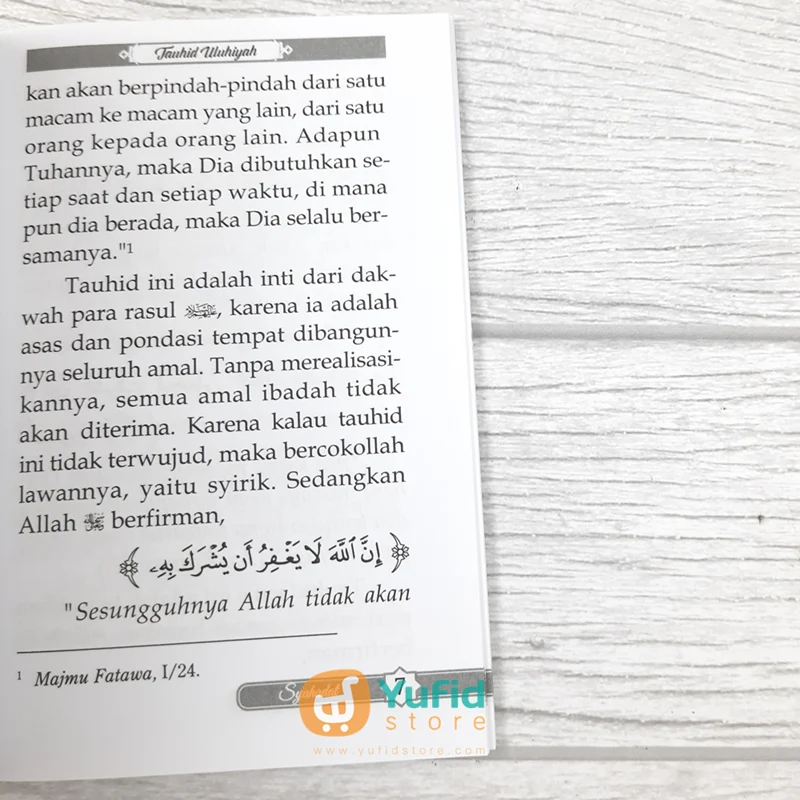 Tauhid Uluhiyah
kan akan berpindah-pindah dari satu
macam ke macam yang lain, dari satu
orang kepada orang lain. Adapun
Tuhannya, maka Dia dibutuhkan se-
tiap saat dan setiap waktu, di mana
pun dia berada, maka Dia selalu ber-
samanya."¹
Tauhid ini adalah inti dari dak-
wah para rasul , karena ia adalah
asas dan pondasi tempat dibangun-
nya seluruh amal. Tanpa merealisasi-
kannya, semua amal ibadah tidak
akan diterima. Karena kalau tauhid
ini tidak terwujud, maka bercokollah
lawannya, yaitu syirik. Sedangkan
Allah ﷻ berfirman,
﴿ إِنَّ ٱللَّهَ لَا يَغْفِرُ أَن يُشْرَكَ بِهِۦ ﴾
"Sesungguhnya Allah tidak akan
¹ Majmu Fatawa, I/24.
7
Yufid
store
www.yufidstore.com